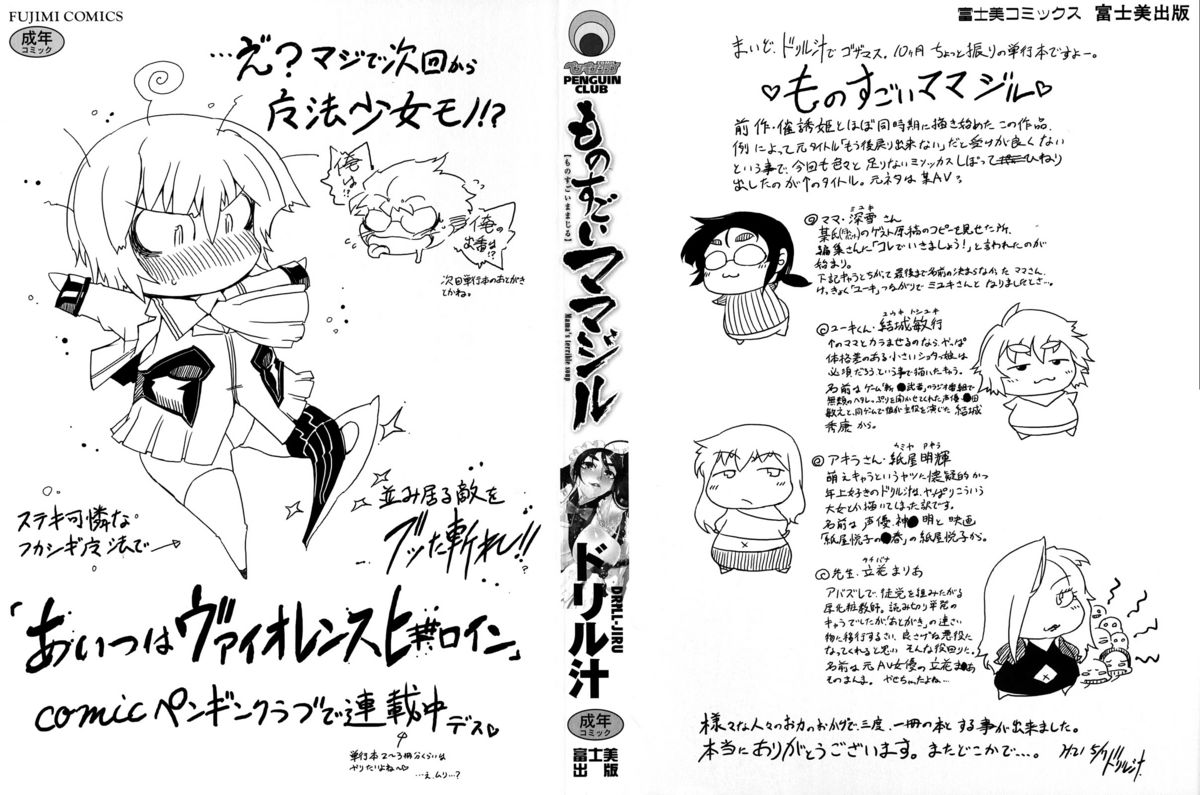 FUJIMI COMICS
成年
コミック
…え？マジで次回から
魔法少女モノ!?
俺は!?
俺の
出番は!?
次回単行本のあとがき
とかね。
ステキ可憐な
フカシギ魔法で
並み居る敵を
ブッた斬れ!!
「あいつはヴァイオレンスヒロイン」
comicペンギンクラブで連載中デス♡
単行本2〜3冊分くらいは
やりたいよね〜♡
…え、ムリ…?
PENGUIN
CLUB
ものすごいママジル
【ものすごいままじる】
Mama's terrible soup
ドリル汁
DRILL-JIRU
成年
コミック
富士美
出版
富士美コミックス 富士美出版
まいど、ドリル汁でゴザマス。10ヶ月ちょっと振りの単行本ですよー。
♡ものすごいママジル♡
前作・催誘姫とほぼ同時期に描き始めたこの作品、
例によって元タイトル「もう後戻り出来ない」だと受けが良くない
という事で、今回も色々と足りないミソッカスしぼってひねり
出したのがこのタイトル。元ネタは某AV?
◎ママ・深雪さん
ミユキ
のゲスト原稿のコピーを見せた所、
編集さんに「コレでいきましょう!」と言われたのが
始まり。
下記キャラとちがって最後まで名前の決まらなかったママさん、
けっきょく「ユーキ」つながりでミユキさんとなりましたとさ…。
◎ユーキくん・結城敏行
ユウキ トシユキ
このママとカラませるのなら、やっぱ
体格差のある小さいショタっ娘は
必須だろうという事で描いたキャラ。
名前はゲーム「斬●武者」のラジオ番組で
無類のヘタレっぷりを聞かせてくれた声優・●田
敏さんと、同ゲームで彼が主役を演じた結城
秀康から。
◎アキラさん・紙屋明輝
カミヤ アキラ
萌えキャラというヤツに懐疑的かつ
年上好きのドリル汁は、やっぱりこういう
大女しか描いてしまった訳です。
名前は声優・神●明と映画
「紙屋悦子の●春」の紙屋悦子から。
◎先生・立花まりあ
タチバナ
アバズレで、徒党を組みたがる
厚化粧教師。読み切り単発の
キャラでしたが「あとがき」の通さい
物に移行するさい、良さげな悪役に
なってくれると思いそんな役回りに。
名前は元AV女優の立花ま●あ
そのまんま。やせちゃったよね…
様々な人々のお力のおかげで、三度、一冊の本とする事が出来ました。
本当にありがとうございます。またどこかで…。
H21 5/1 ドリル汁